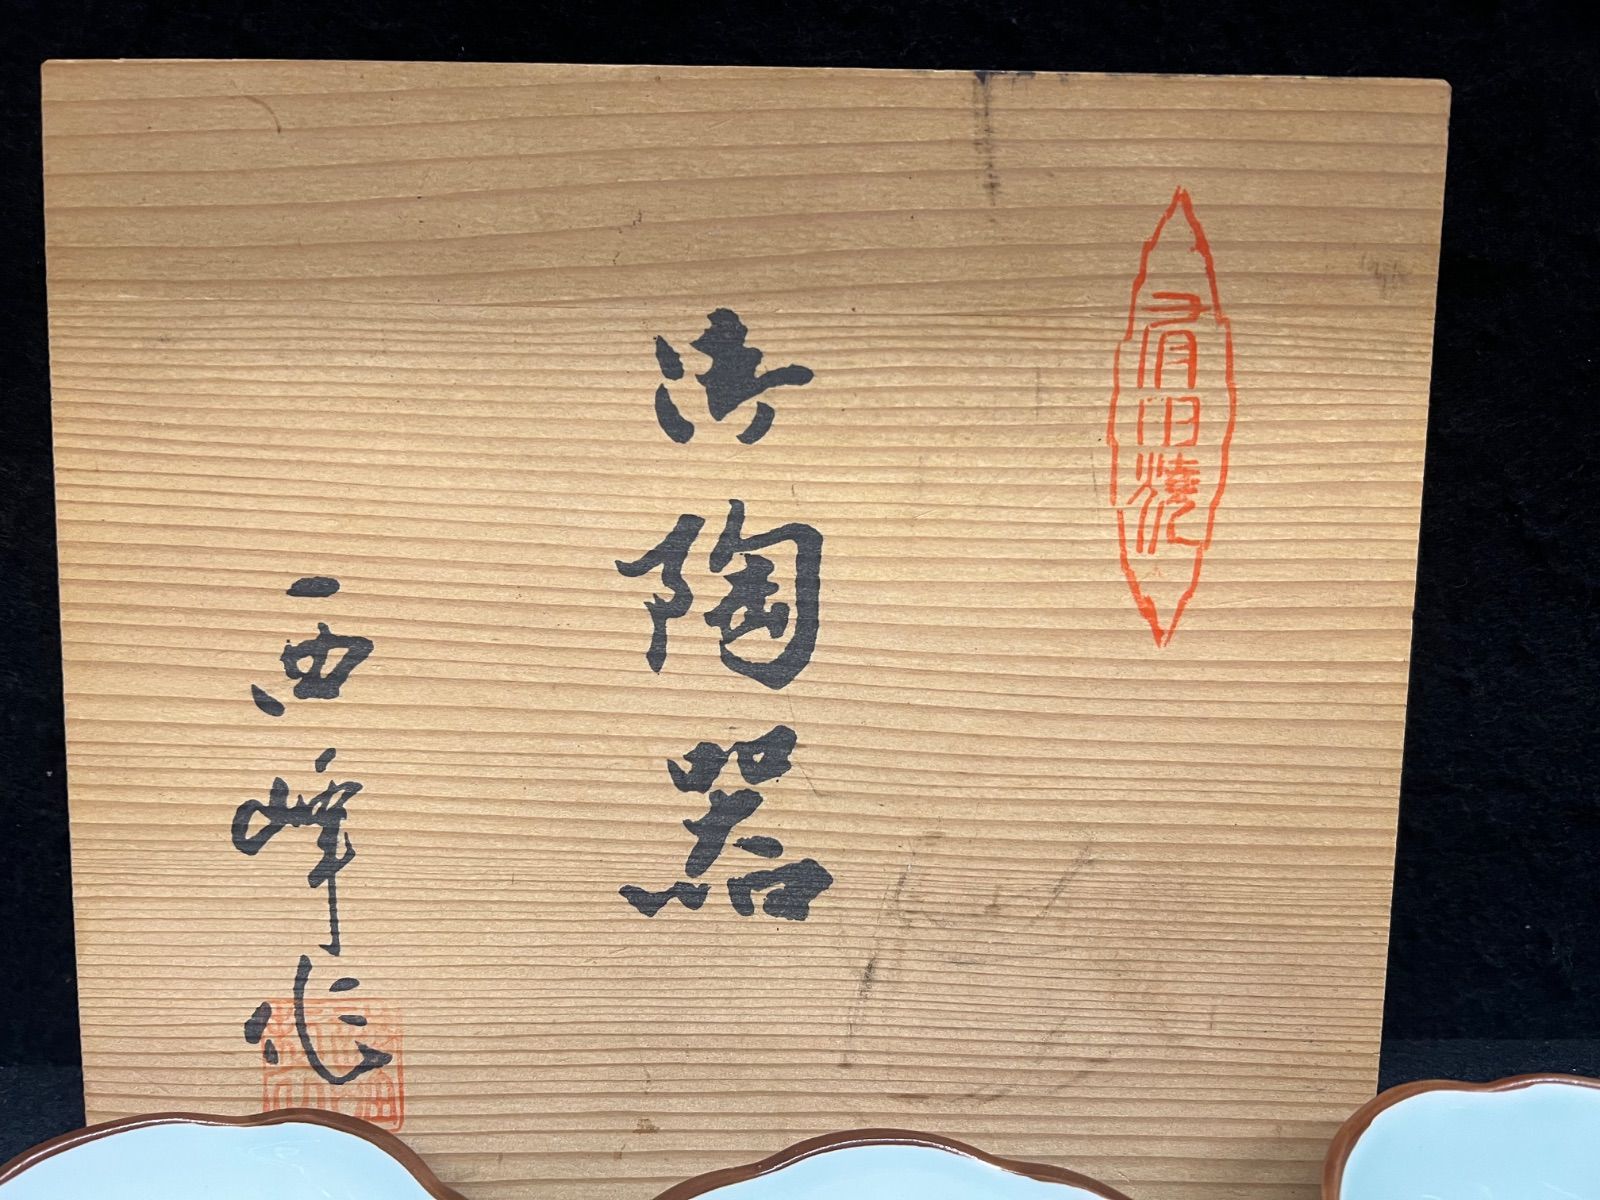 有田焼
御陶器
西峰作